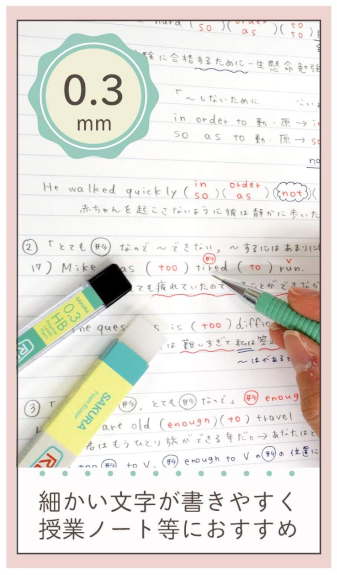 so order to
0.3
mm
に合格するために一生懸命勉強
「~しないために
in order to 動・原 →
so as to 動・原 →
He walked quickly ( in so )( order as )( not )(
赤ちゃんを起こさないように彼は静かに歩いた
② 「とても 形 なので ~できない, ~するにはあまりに
17) Mike as ( too ) tired ( to ) run.
も疲れていたので ことができな
03
HB
he ques s is ( too ) diffic
は 難しすぎて 私は
~はがあると
SAKURA
Foam Eraser
③ 「 形 , とても 形 なので」 形 enoug
are old (enough)(to) travel
君はもうひとり旅ができる年だ → あなたは
to V, 形 enough to V の 形 の位置に
細かい文字が書きやすく
授業ノート等におすすめ